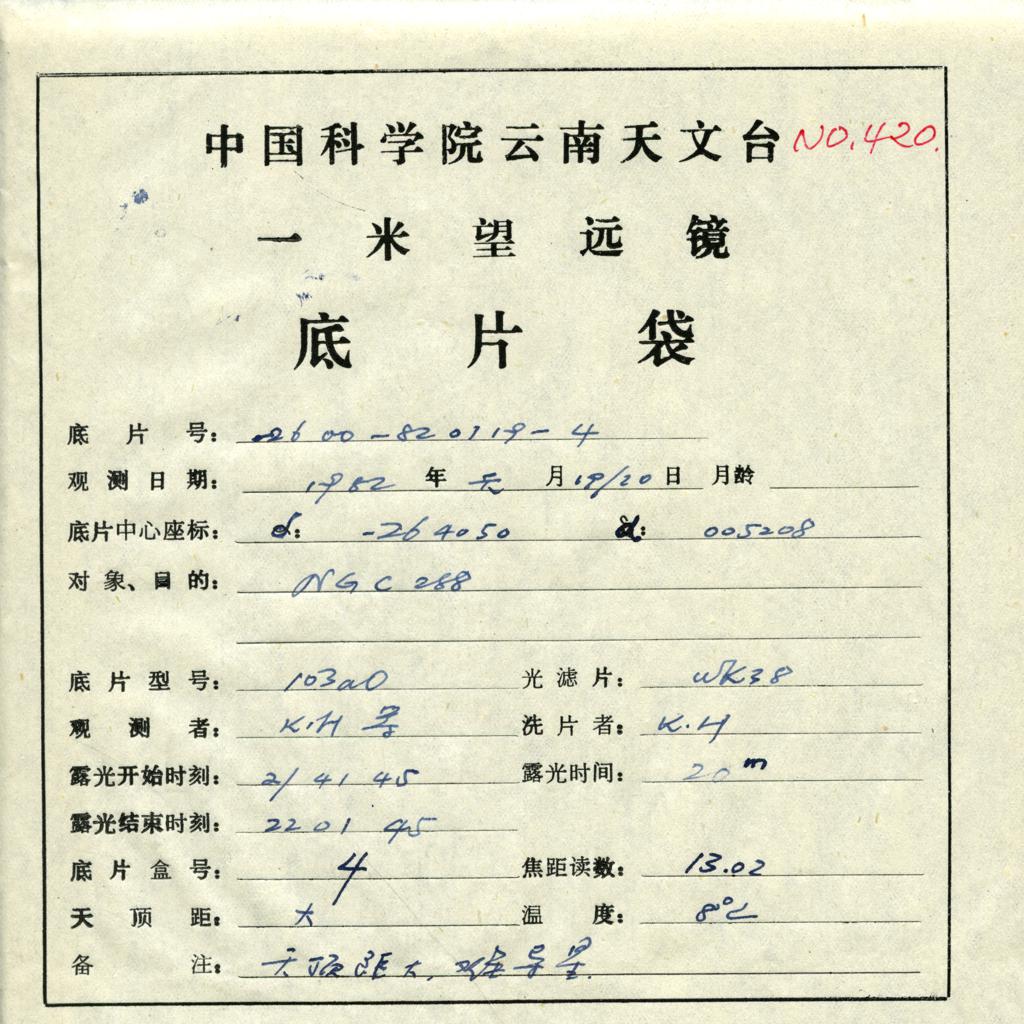 中国科学院云南天文台 NO.420.
一米望远镜
底片袋
底片号： 2600-820119-4
观测日期： 1982 年 元 月 19/20 日 月龄
底片中心座标： δ： -264050 α： 005208
对象、目的： NGC 288
底片型号： 103aO 光滤片： WK38
观测者： K.H 等 洗片者： K.H
露光开始时刻： 21 41 45 露光时间： 20m
露光结束时刻： 22 01 45
底片盒号： 4 焦距读数： 13.02
天顶距： 大 温度： 8℃
备注： 天顶距大，难导星.